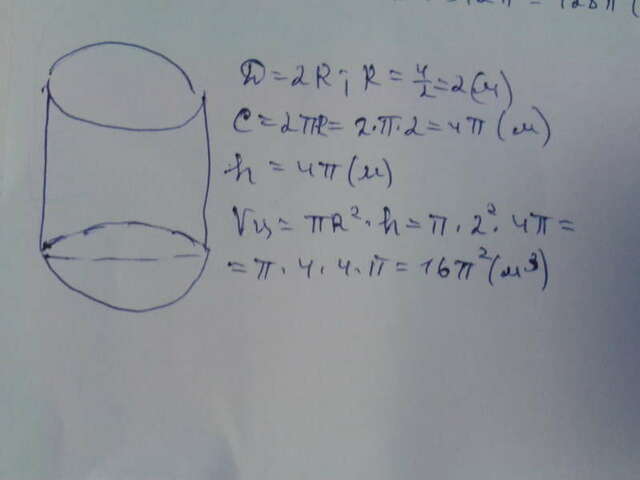 = 128π (
D = 2R; R = 4/2 = 2 (м)
C = 2πR = 2·π·2 = 4π (м)
h = 4π (м)
Vц = πR²·h = π·2²·4π =
= π·4·4·π = 16π² (м³)